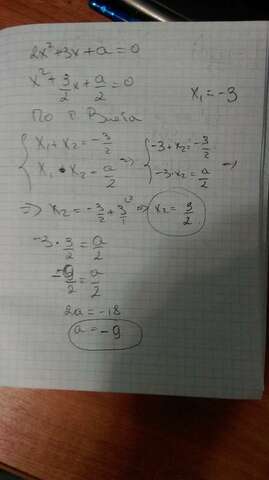 2x² + 3x + a = 0
x² + 3/2 x + a/2 = 0
x₁ = -3
По т Виета
{ x₁ + x₂ = -3/2 => { -3 + x₂ = -3/2 =>
{ x₁ · x₂ = a/2 { -3 · x₂ = a/2
=> x₂ = -3/2 + 3/1 => x₂ = 3/2
-3 · 3/2 = a/2
-9/2 = a/2
2a = -18
a = -9